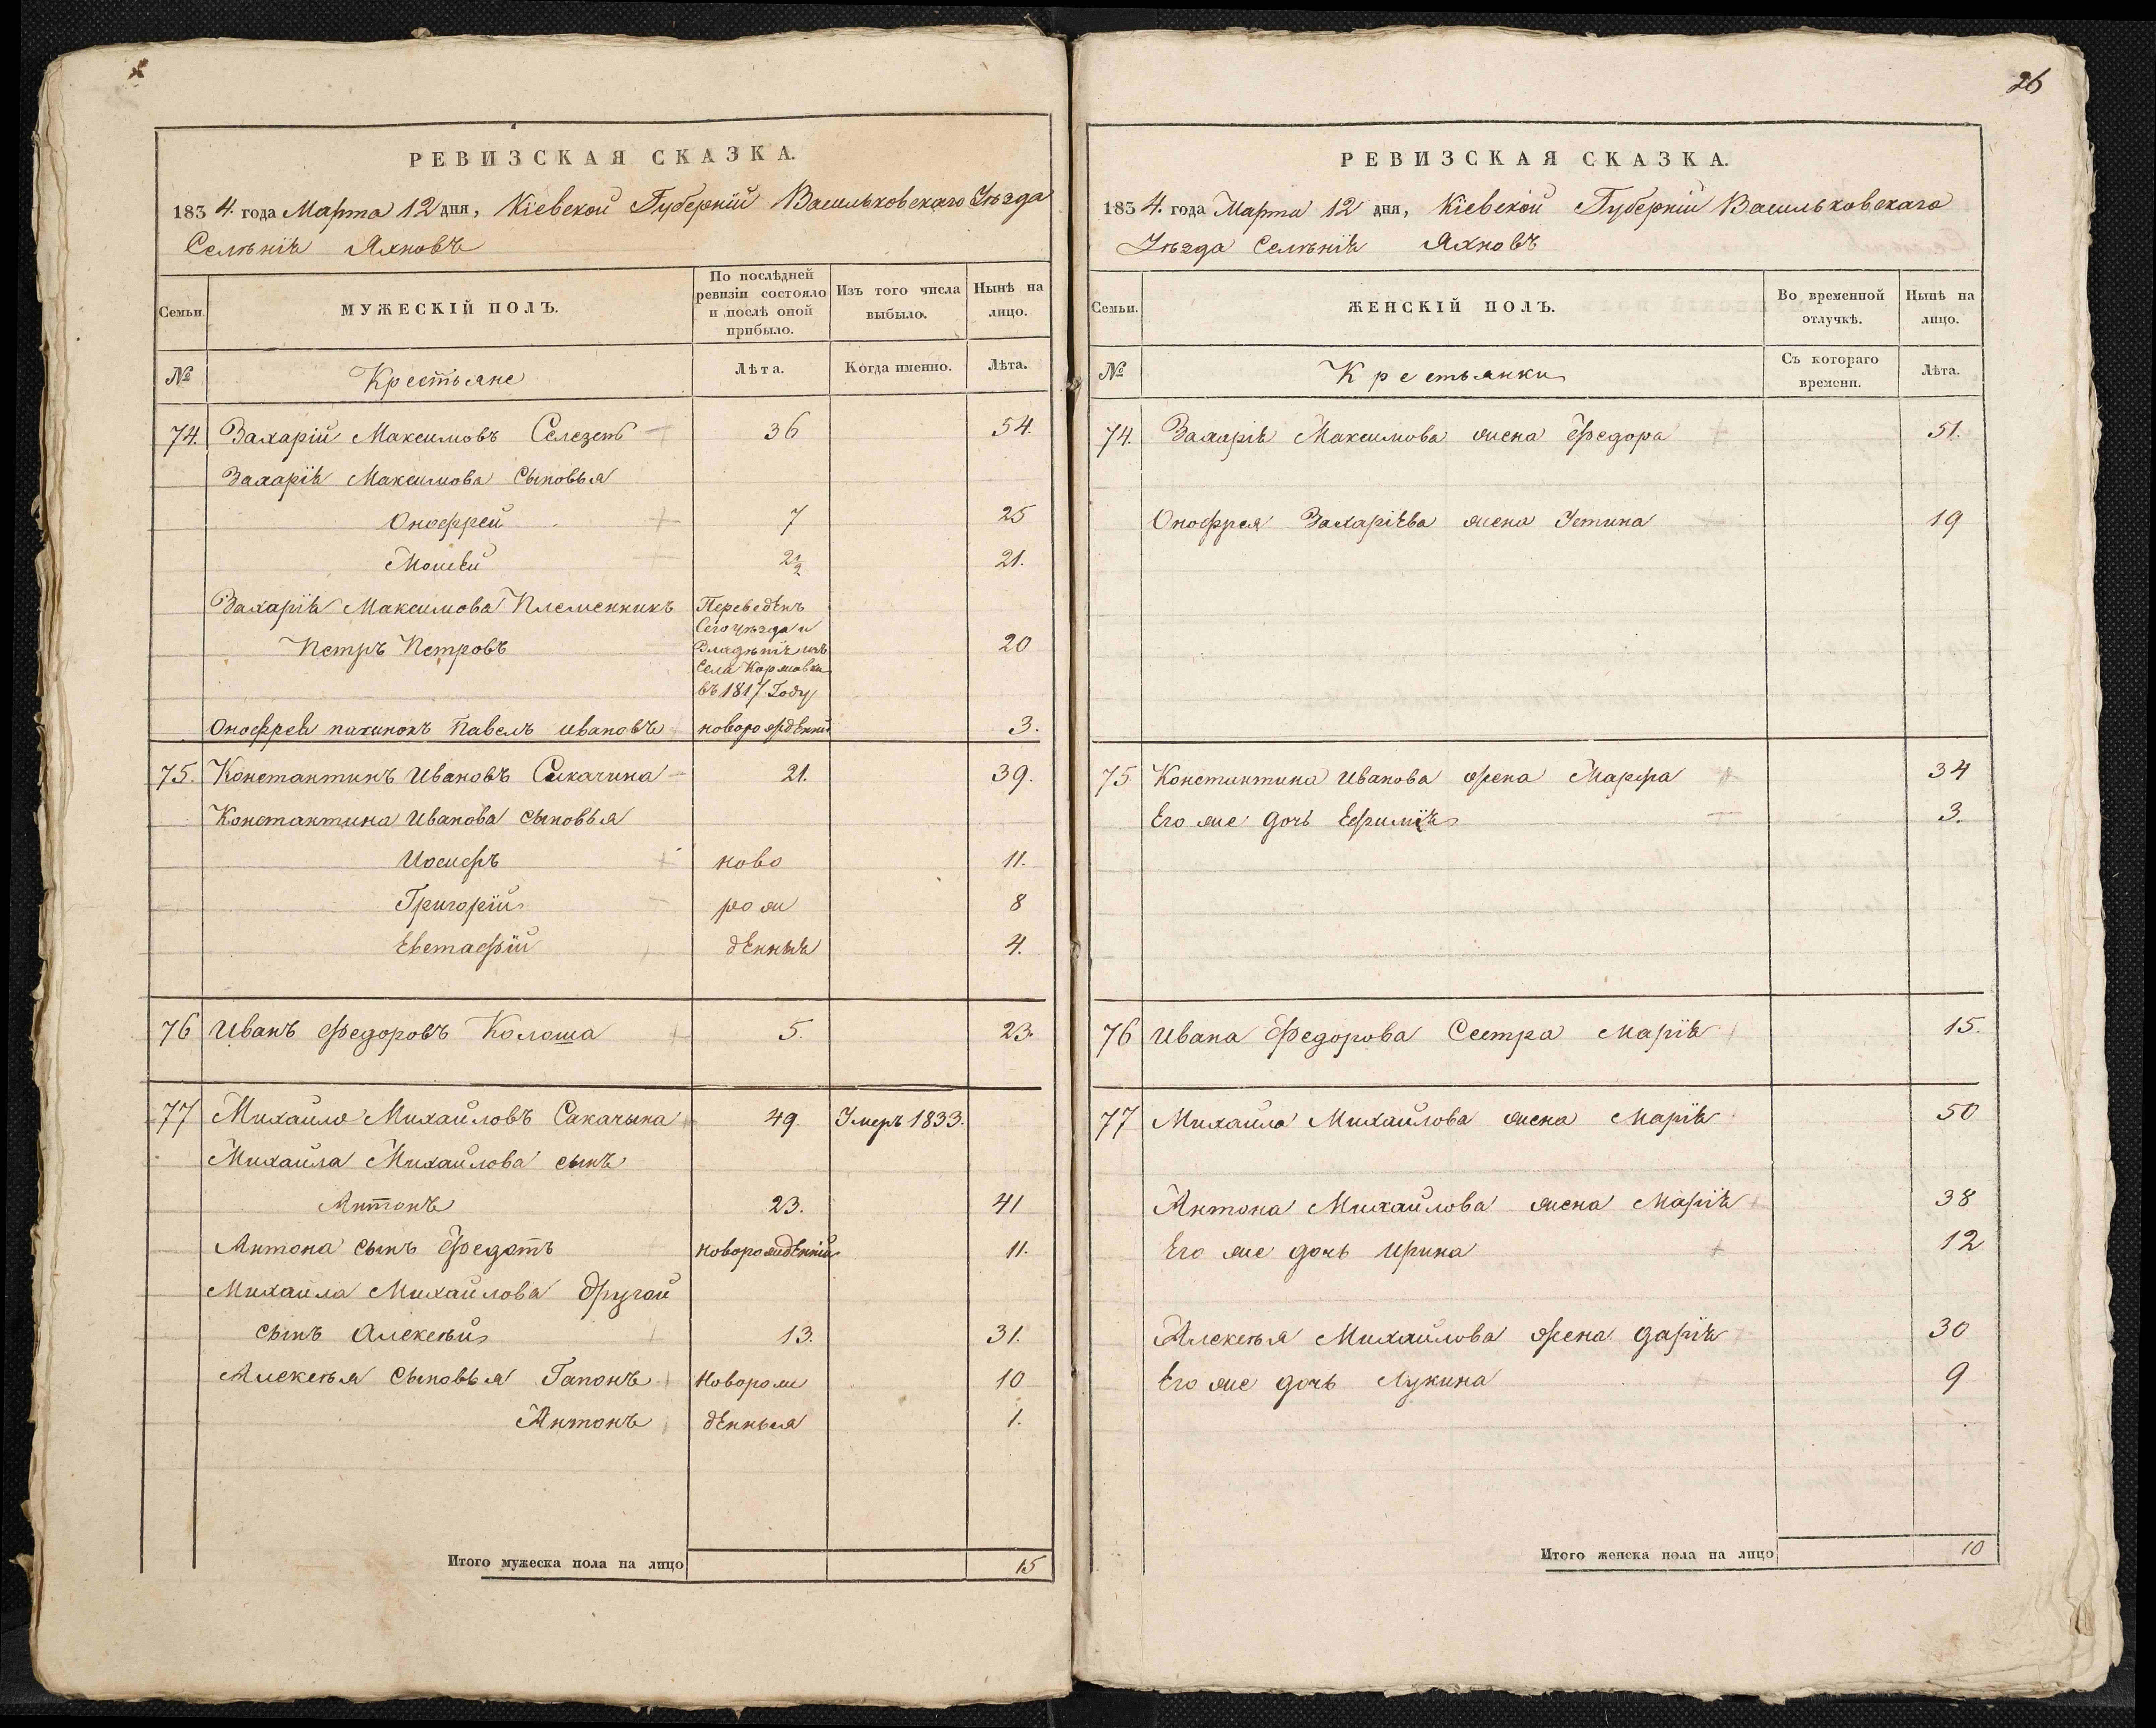 РЕВИЗСКАЯ СКАЗКА.
1834. года Марта 12 дня, Кіевской Губерніи Васильковскаго Уѣзда
Селѣнїя Яхновъ
Семьи.
МУЖЕСКІЙ ПОЛЪ.
По послѣдней ревизіи состояло и послѣ оной прибыло.
Изъ того числа выбыло.
Нынѣ на лицо.
№
Крестьяне
Лѣта.
Когда именно.
Лѣта.
74. Захарій Максимовъ Селезень 36 54.
Захарїя Максимова Сыновья
Онофрей 7 25
Мойсей 2½ 21.
Захарїя Максимова Племенникъ Переведенъ
Сего уѣзда и
Петръ Петровъ Владѣнїя изъ 20
Села
въ 1817 Году
Онофрея Павелъ Ивановъ новорожденній 3.
75. Константинъ Ивановъ Сикачина 21. 39.
Константина Иванова сыновья
Иосифъ ново 11.
Григорїй рож 8
Евстафїй денныя 4.
76 Иванъ Федоровъ Колоша 5. 23.
77 Михайло Михайловъ Сакачына 49. Умеръ 1833.
Михайла Михайлова сынъ
Антонъ 23. 41
Антона сынъ Федотъ новорожденній 11.
Михайла Михайлова другой
сынъ Алексѣй 13. 31.
Алексѣя Сыновья Гапонъ Новорож 10
Антонъ денныя 1.
Итого мужеска пола на лицо 15
26
РЕВИЗСКАЯ СКАЗКА.
1834. года Марта 12 дня, Кіевской Губерніи Васильковскаго
Уѣзда Селѣнїя Яхновъ
Семьи.
ЖЕНСКІЙ ПОЛЪ.
Во временной отлучкѣ.
Нынѣ на лицо.
№
Крестьянки
Съ котораго времени.
Лѣта.
74. Захарія Максимова жена Федора 51.
Онофрея Захаріева жена Устина 19
75 Константина Иванова жена Марфа 34
Его же дочь Ефимїя 3.
76 Ивана Федорова Сестра Марїя 15.
77 Михайла Михайлова жена Марїя 50
Антона Михайлова жена Марїя 38
Его же дочь Ирина 12
Алексѣя Михайлова жена Дарїя 30
Его же дочь Лукина 9
Итого женска пола на лицо 10